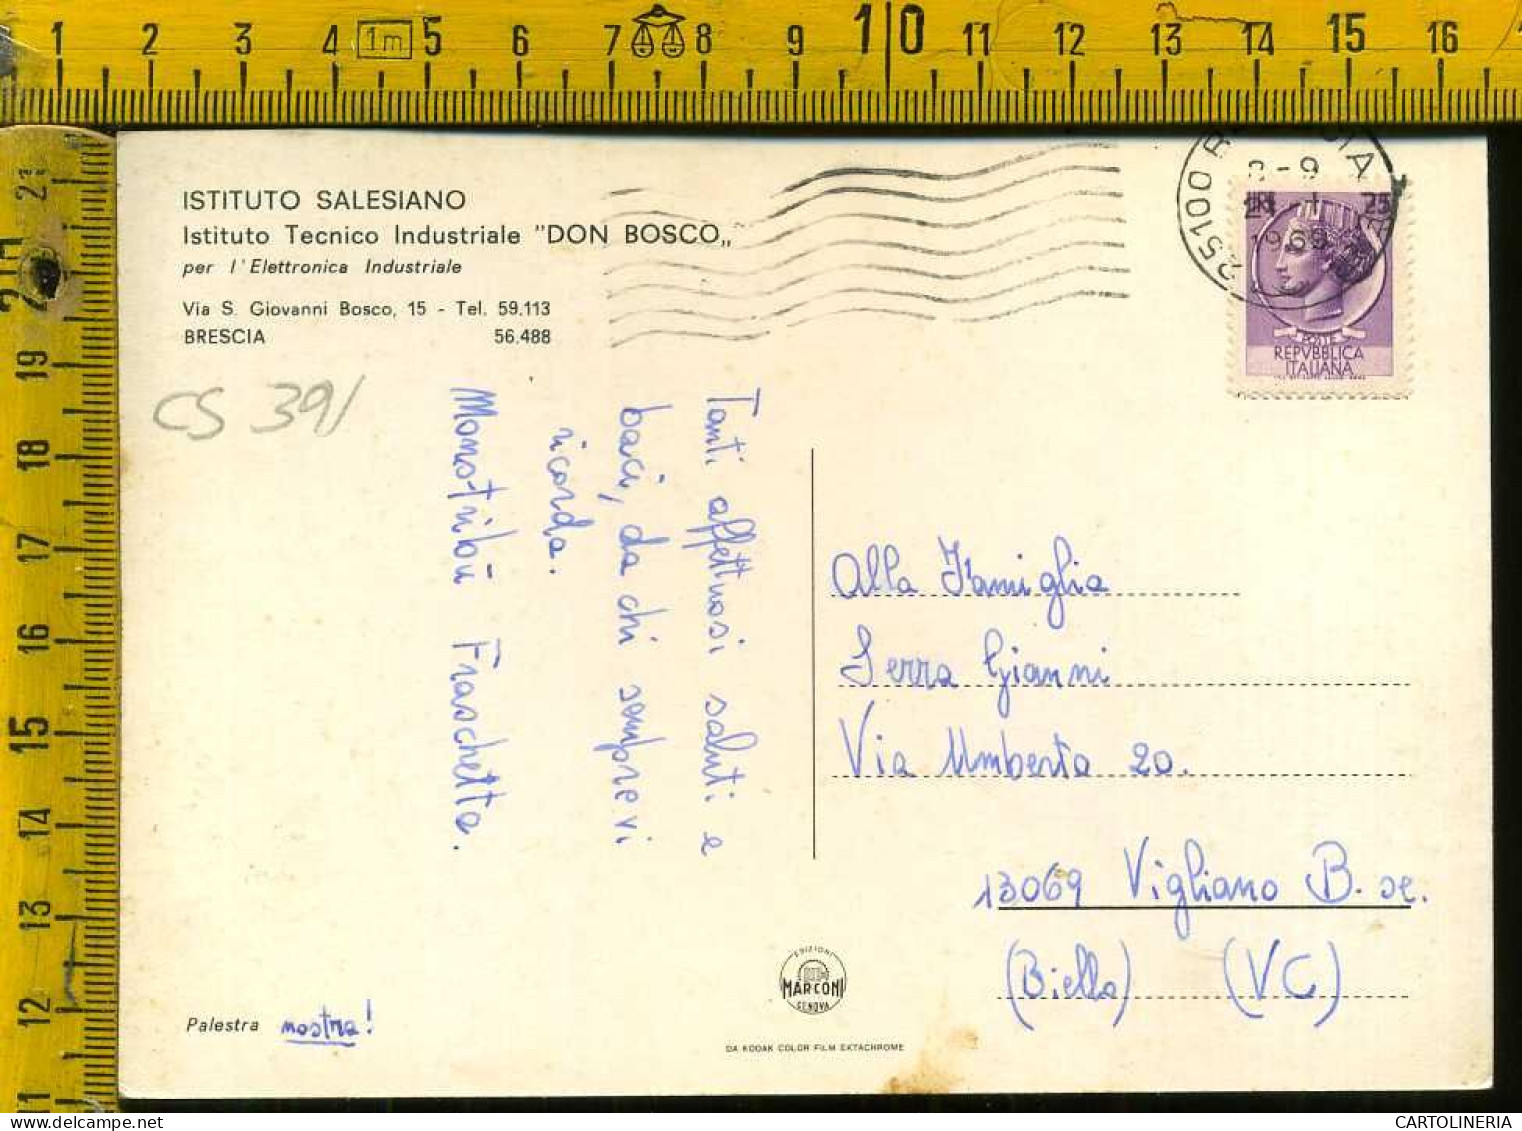 1 2 3 4 1m 5 6 7 8 9 10 11 12 13 14 15 16
21
20
19
18
17
16
15
14
13
12
11
ISTITUTO SALESIANO
Istituto Tecnico Industriale "DON BOSCO„
per l'Elettronica Industriale
Via S. Giovanni Bosco, 15 - Tel. 59.113
BRESCIA 56.488
CS 391
Tanti affettuosi saluti e
baci, da chi sempre vi
ricorda.
Fraschetta.
Palestra nostra!
EDIZIONI
MARCONI
GENOVA
DA KODAK COLOR FILM EKTACHROME
25100
8-9
1969
25
POSTE
REPVBBLICA
ITALIANA
Alla Famiglia
Serra Gianni
Via Umberto 20.
13069 Vigliano B.se.
(Biella) (VC)
CARTOLINERIA